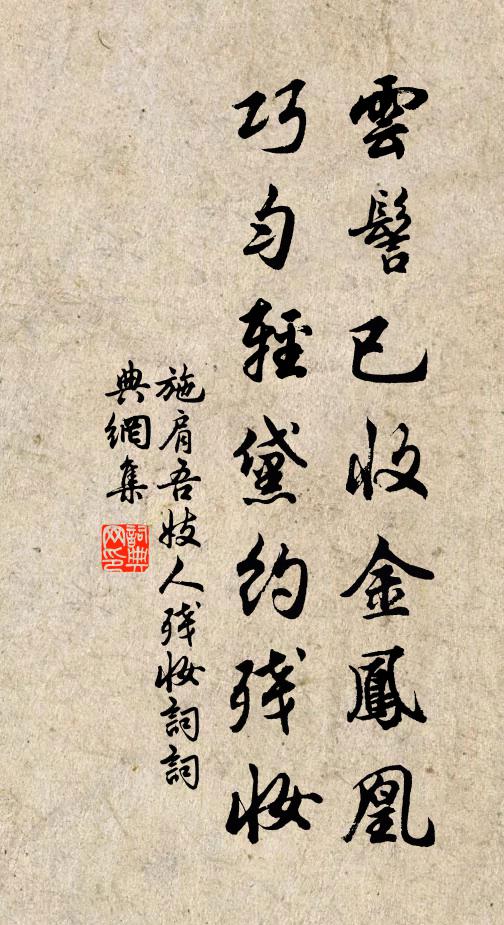 雲髻已收金鳳凰
巧勻輕黛約残妝
施肩吾妓人残妝詞詞
典網集
詞典網印